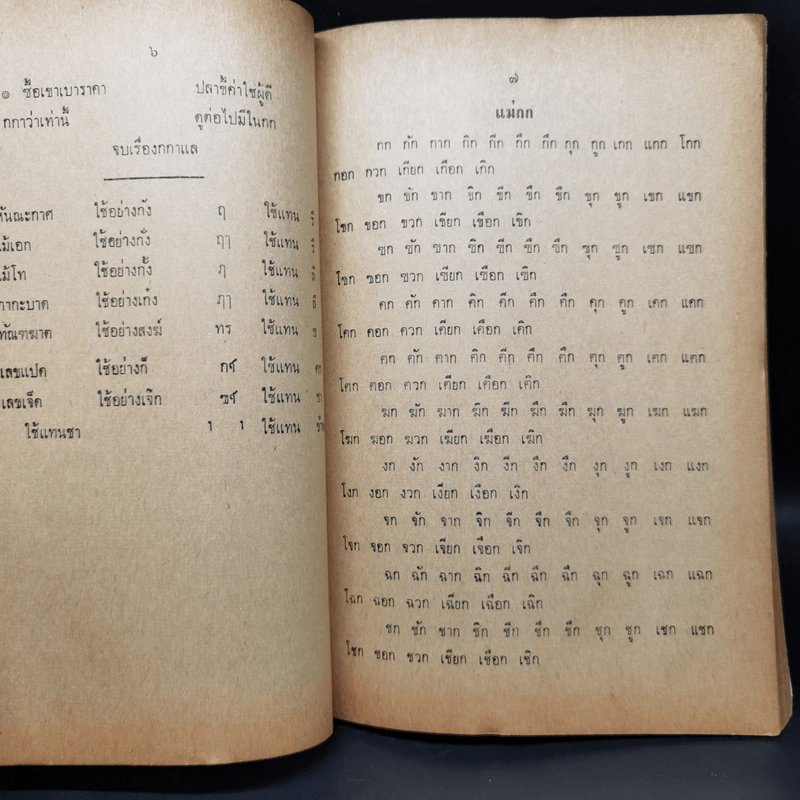 ๖
๑ ซื้อเขาเบาราคา ปลาขี้ค่าใช่ผู้ดี
กกาว่าเท่านี้ ดูต่อไปมีในกก
จบเรื่องกกาแล
ทันฑะกาศ ใช้อย่างกัง ฤ ใช้แทน รึ
ไม้เอก ใช้อย่างกั่ง ฤๅ ใช้แทน รื
ไม้โท ใช้อย่างกั้ง ฦ ใช้แทน ลึ
กากะบาด ใช้อย่างเก๋ง ฦๅ ใช้แทน ลื
ทัณฑฆาต ใช้อย่างสงฆ์ ทร ใช้แทน ซ
เลขแปด ใช้อย่างก็ ใช้แทน
เลขเจ็ด ใช้อย่างเจ๊ก ใช้แทน
ใช้แทนซา ใช้แทน
๗
แม่กก
กก กัก กาก กิก กีก กึก กืก กุก กูก เกก แกก โกก
กอก กวก เกียก เกือก เกิก
ขก ขัก ขาก ขิก ขีก ขึก ขืก ขุก ขูก เขก แขก
โขก ขอก ขวก เขียก เขือก เขิก
ฃก ฃัก ฃาก ฃิก ฃีก ฃึก ฃืก ฃุก ฃูก เฃก แฃก
โฃก ฃอก ฃวก เฃียก เฃือก เฃิก
คก คัก คาก คิก คีก คึก คืก คุก คูก เคก แคก
โคก คอก ควก เคียก เคือก เคิก
ฅก ฅัก ฅาก ฅิก ฅีก ฅึก ฅืก ฅุก ฅูก เฅก แฅก
โฅก ฅอก ฅวก เฅียก เฅือก เฅิก
ฆก ฆัก ฆาก ฆิก ฆีก ฆึก ฆืก ฆุก ฆูก เฆก แฆก
โฆก ฆอก ฆวก เฆียก เฆือก เฆิก
งก งัก งาก งิก งีก งึก งืก งุก งูก เงก แงก
โงก งอก งวก เงียก เงือก เงิก
จก จัก จาก จิก จีก จึก จืก จุก จูก เจก แจก
โจก จอก จวก เจียก เจือก เจิก
ฉก ฉัก ฉาก ฉิก ฉีก ฉึก ฉืก ฉุก ฉูก เฉก แฉก
โฉก ฉอก ฉวก เฉียก เฉือก เฉิก
ชก ชัก ชาก ชิก ชีก ชึก ชืก ชุก ชูก เชก แชก
โชก ชอก ชวก เชียก เชือก เชิก